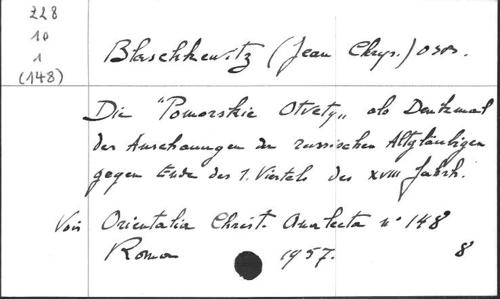 228
10
1
(148)
Blaschkewitz (Jean Chrys.) OSB.
Die "Pomorskie Otvety" als Denkmal
der Anschauungen der russischen Altgläubigen
gegen Ende des 1. Viertels des XVIII Jahrh.
Voir Orientalia Christ. Analecta n° 148
Roma 1957. 8